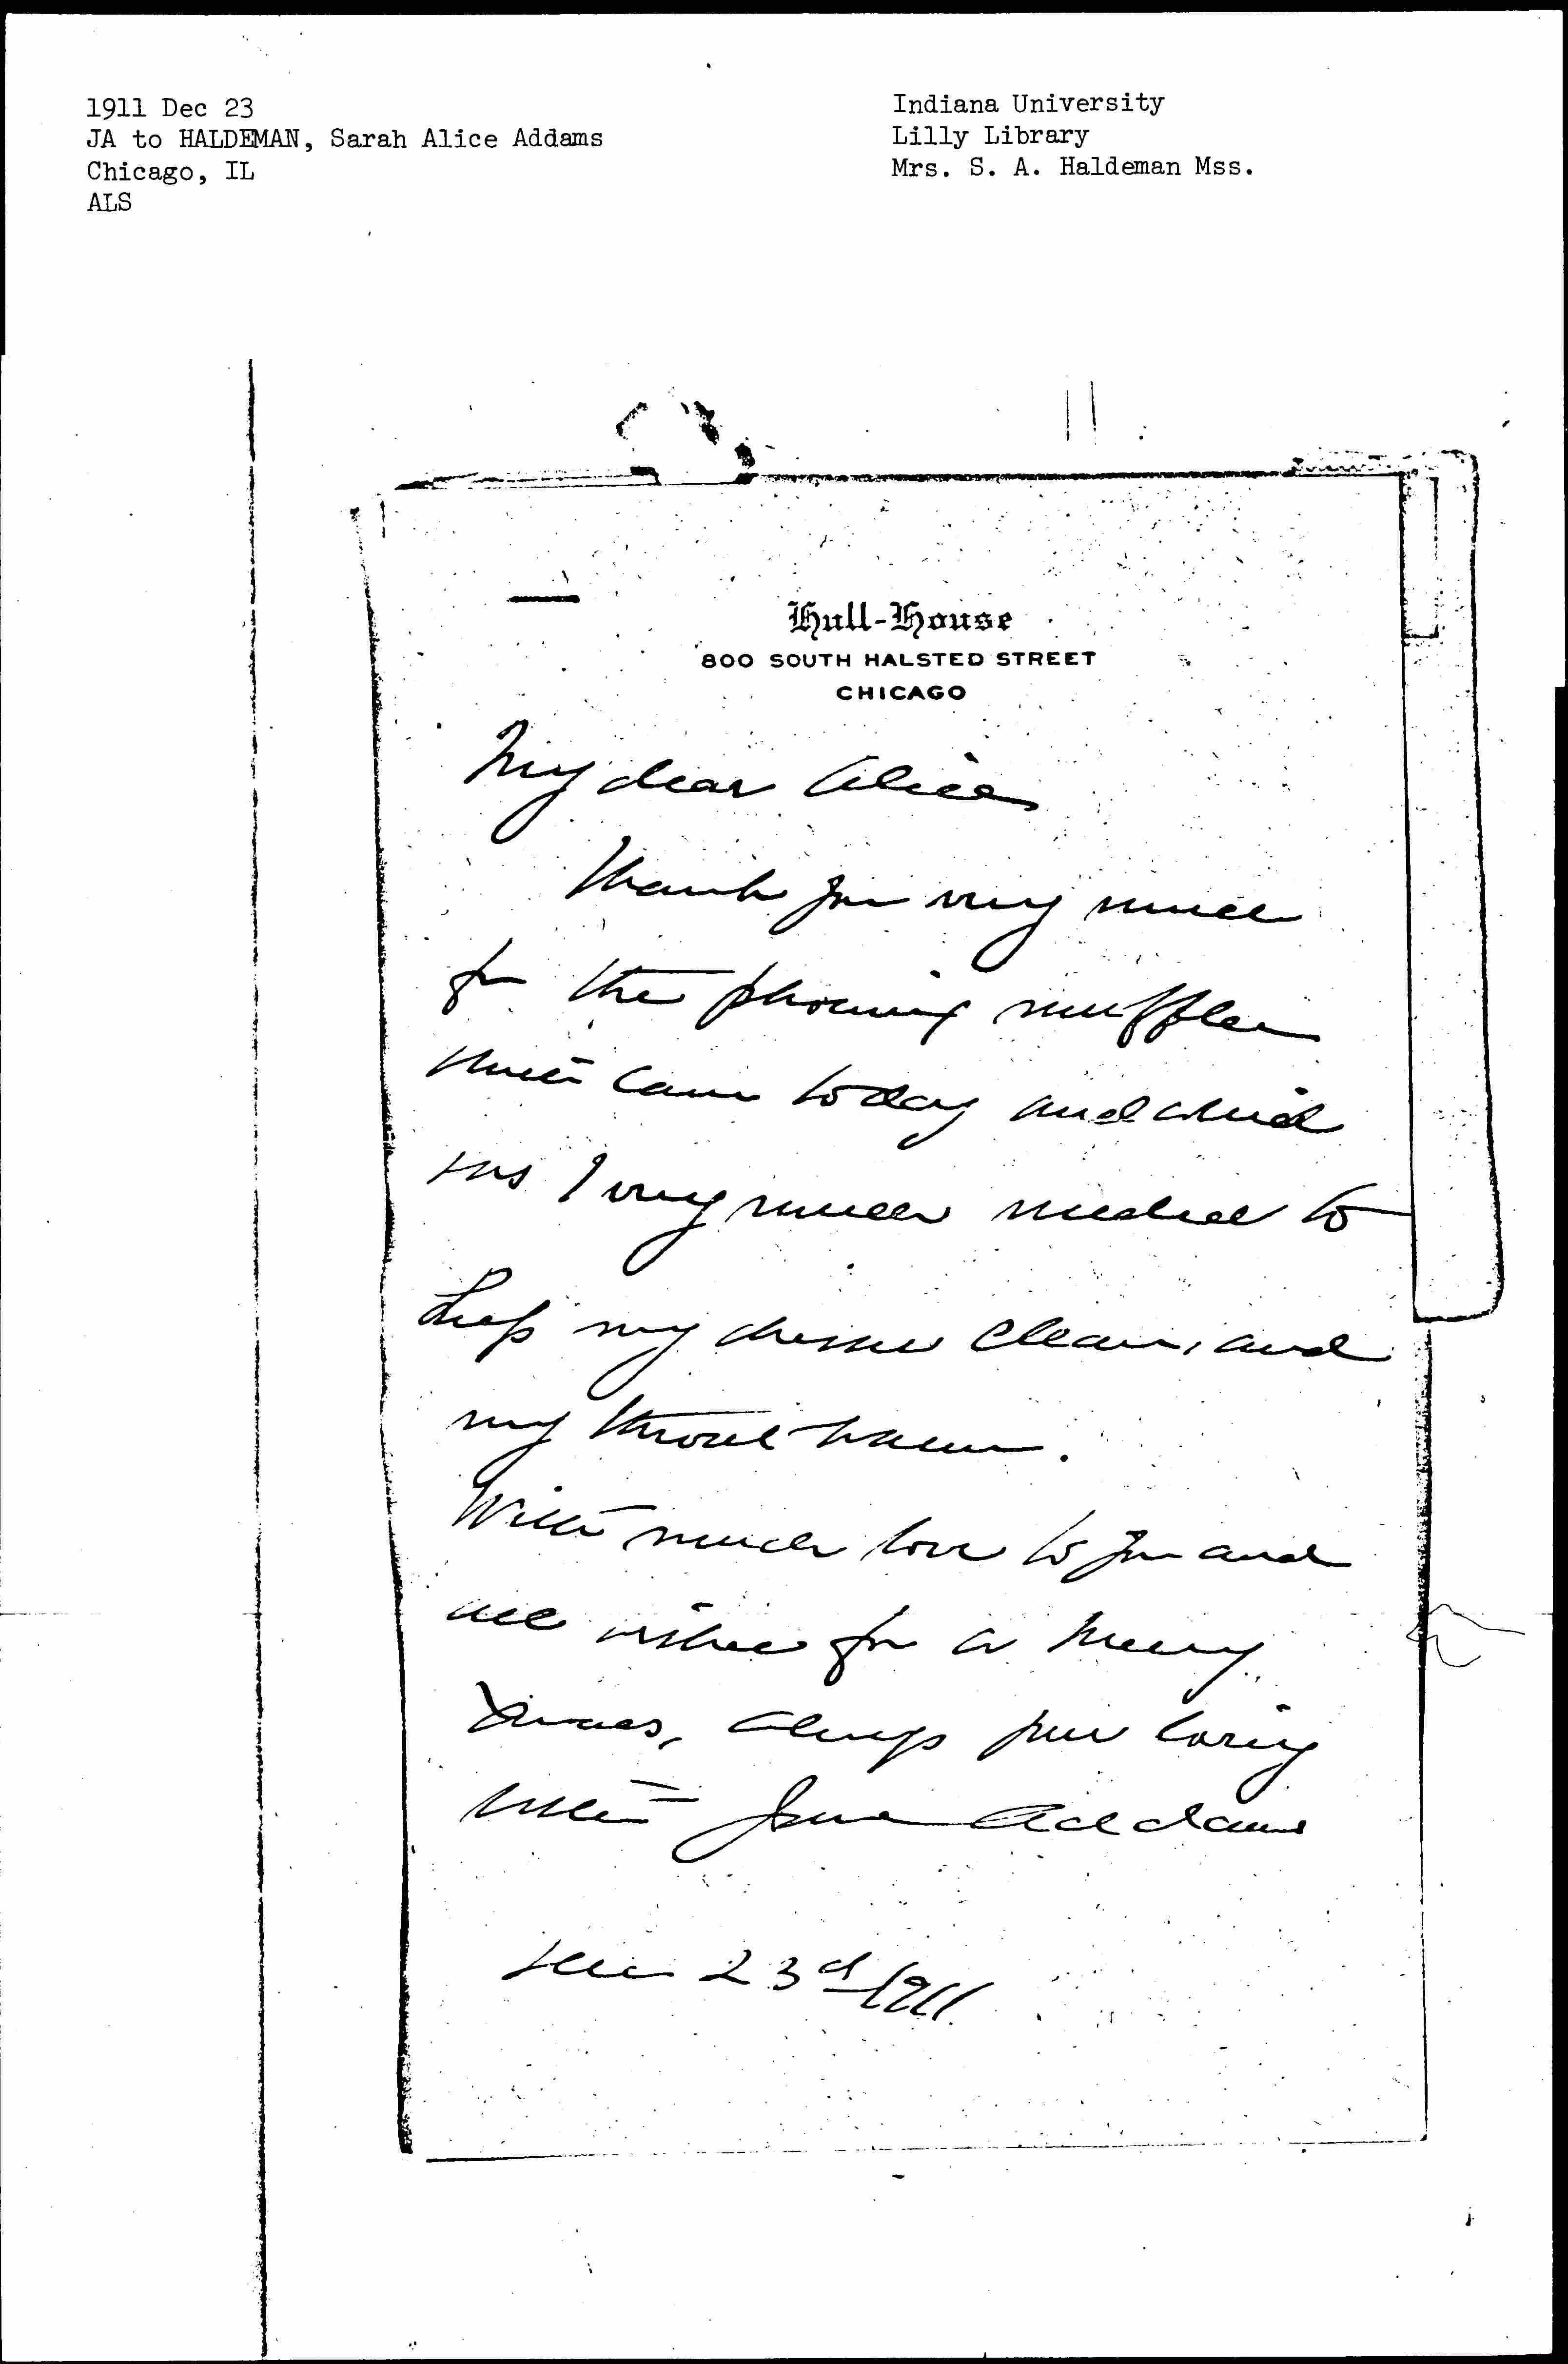 1911 Dec 23
JA to HALDEMAN, Sarah Alice Addams
Chicago, IL
ALS
Indiana University
Lilly Library
Mrs. S. A. Haldeman Mss.
Hull-House
800 SOUTH HALSTED STREET
CHICAGO
My dear Alice
Thank you very much
for the muffler
which came today and which
was very much needed to
keep my dresses clean, and
my throat warm.
With much love to you and
all wishes for a Merry
Xmas, always your loving
sister Jane Addams
Dec 23d 1911